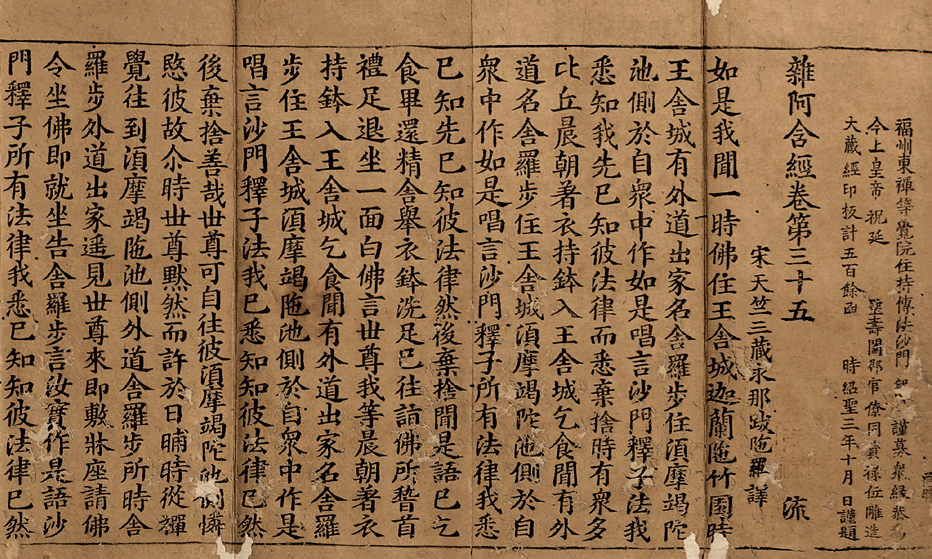 福州東禪等覺院住持傳法沙門 謹募衆緣恭為
今上皇帝祝延 聖壽闔郡官僚同資禄位雕造
大藏經印板計五百餘函 時紹聖三年十月 日謹題
雜阿含經卷第三十五 流
宋天竺三藏求那跋陁羅譯
如是我聞一時佛住王舍城迦蘭陁竹園時
王舍城有外道出家名舍羅步住湏摩竭陀
池側於自衆中作如是唱言沙門釋子法我
悉知我先已知彼法律而悉棄捨時有衆多
比丘晨朝著衣持鉢入王舍城乞食聞有外
道名舍羅步住王舍城湏摩竭陀池側於自
衆中作如是唱言沙門釋子所有法律我悉
已知先已知彼法律然後棄捨聞是語已乞
食畢還精舍舉衣鉢洗足已往詣佛所稽首
禮足退坐一面白佛言世尊我等晨朝著衣
持鉢入王舍城乞食聞有外道出家名舍羅
步住王舍城湏摩竭陁池側於自衆中作是
唱言沙門釋子法我已悉知知彼法律已然
後棄捨善哉世尊可自往彼湏摩竭陀池側憐
愍彼故尒時世尊默然而許於日晡時從禪
覺往到湏摩竭陁池側外道舍羅步所時舍
羅步外道出家遥見世尊來即敷牀座請佛
令坐佛即就坐告舍羅步言汝實作是語沙
門釋子所有法律我悉已知知彼法律已然